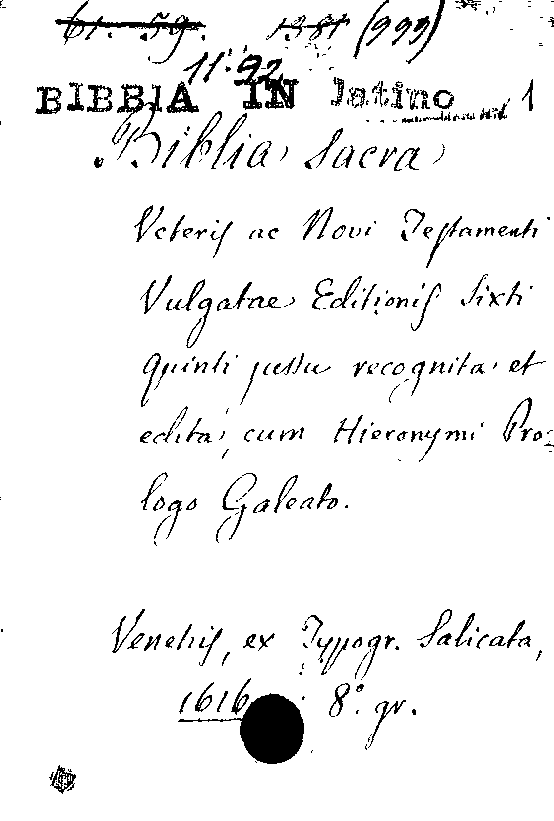 61. 59. 1381 (999)
11. 92
BIBBIA IN latino 1
Biblia sacra
Veteris ac Novi Testamenti
Vulgatae Editionis Sixti
quinti jussu recognita et
edita, cum Hieronymi Pro-
logo Galeato.
Venetiis, ex Typogr. Salicata,
1616 8.° gr.